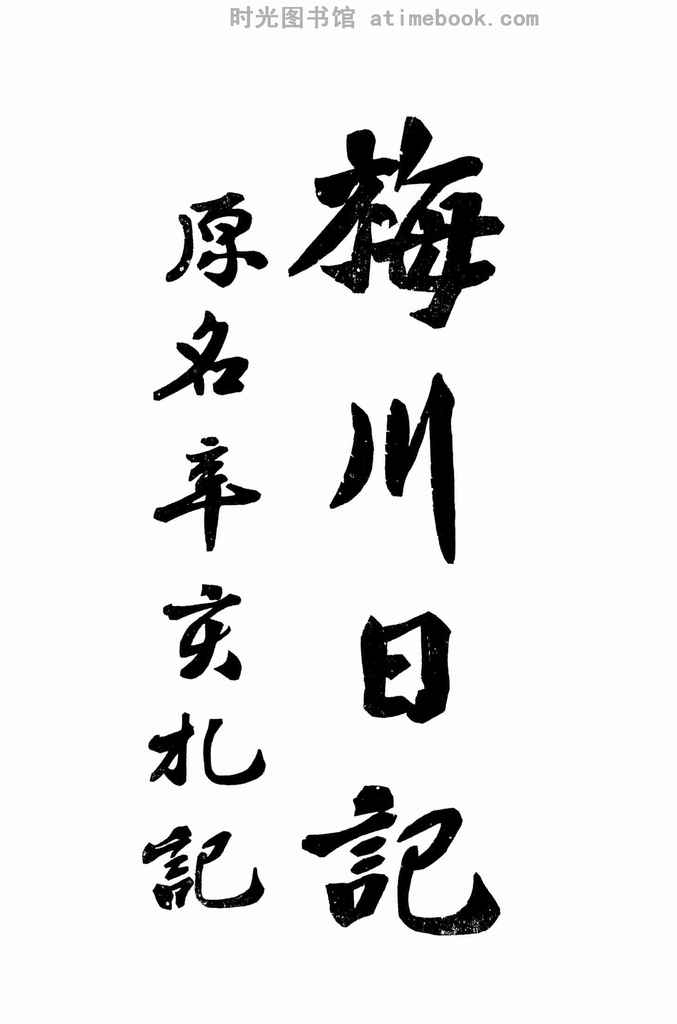 时光图书馆 atimebook.com
梅川日記
原名辛亥札記